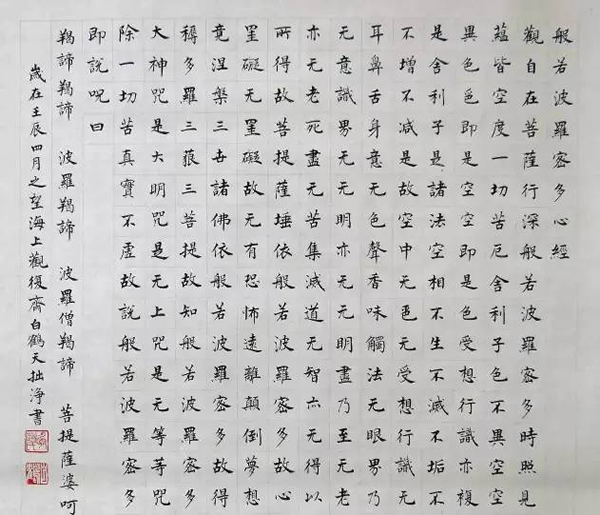 般若波羅密多心經
觀自在菩薩行深般若波羅密多時照見
蘊皆空度一切苦厄舍利子色不異空空
異色色即是空空即是色受想行識亦複
是舍利子是諸法空相不生不滅不垢不
不增不減是故空中无色无受想行識无
耳鼻舌身意无色聲香味觸法无眼界乃
无意識界无无明亦无无明盡乃至无老
亦无老死盡无苦集滅道无智亦无得以
所得故菩提薩埵依般若波羅密多故心
罣礙无罣礙故无有恐怖遠離顛倒夢想
竟涅槃三世諸佛依般若波羅密多故得
耨多羅三藐三菩提故知般若波羅密多
大神咒是大明咒是无上咒是无等等咒
除一切苦真實不虛故說般若波羅密多
即說呪曰
羯諦羯諦 波羅羯諦 波羅僧羯諦 菩提薩婆呵
歲在壬辰四月之望海上觀復齋白鶴天拙淨書